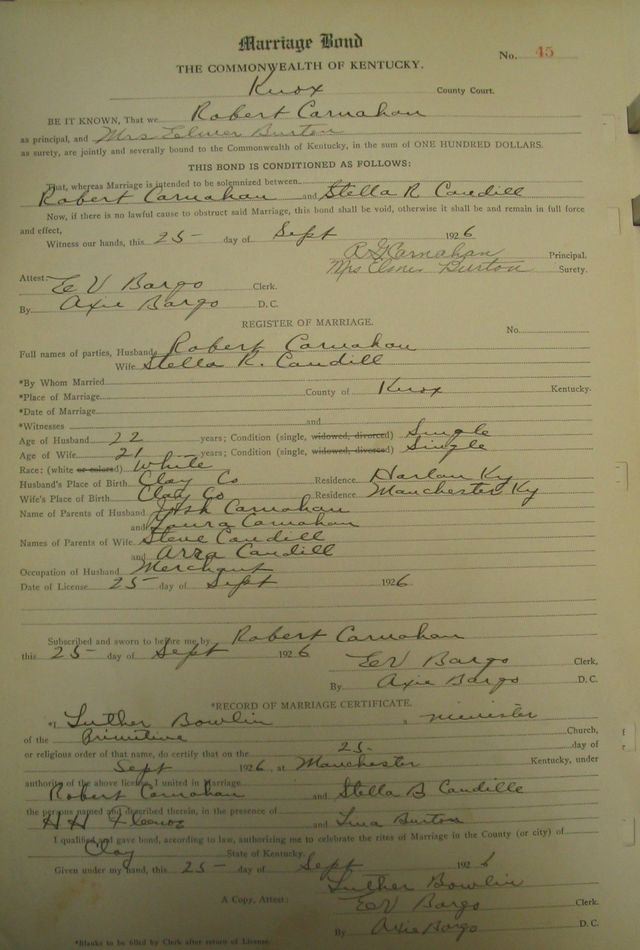 Marriage Bond
No. 45
THE COMMONWEALTH OF KENTUCKY.
Knox County Court.
BE IT KNOWN, That we Robert Carnahan
as principal, and Mrs Elmer Burton
as surety, are jointly and severally bound to the Commonwealth of Kentucky, in the sum of ONE HUNDRED DOLLARS.
THIS BOND IS CONDITIONED AS FOLLOWS:
That, whereas Marriage is intended to be solemnized between
Robert Carnahan and Stella R Caudill
Now, if there is no lawful cause to obstruct said Marriage, this bond shall be void, otherwise it shall be and remain in full force
and effect,
Witness our hands, this 25 day of Sept 1926
R G Carnahan Principal.
Mrs Elmer Burton Surety.
Attest: E V Bargo Clerk.
By Axie Bargo D.C.
REGISTER OF MARRIAGE.
No.
Full names of parties, Husband Robert Carnahan
Wife Stella R. Caudill
*By Whom Married
*Place of Marriage County of Knox Kentucky.
*Date of Marriage
*Witnesses and
Age of Husband 22 years; Condition (single, widowed, divorced) Single
Age of Wife 21 years; Condition (single, widowed, divorced) Single
Race: (white or colored) White
Husband's Place of Birth Clay Co Residence Harlan Ky
Wife's Place of Birth Clay Co Residence Manchester Ky
Name of Parents of Husband Carnahan
and Laura Carnahan
Names of Parents of Wife Steve Caudill
and Caudill
Occupation of Husband Merchant
Date of License 25 day of Sept 1926
Subscribed and sworn to before me by Robert Carnahan
this 25 day of Sept 1926
E V Bargo Clerk,
By Axie Bargo D.C.
*RECORD OF MARRIAGE CERTIFICATE.
*I Luther Bowlin a minister
of the Primitive Church,
or religious order of that name, do certify that on the 25 day of
Sept 1926, at Manchester Kentucky, under
authority of the above license, I united in Marriage
Robert Carnahan and Stella B Caudille
the persons named and described therein, in the presence of
H H and Burton
I qualified and gave bond, according to law, authorizing me to celebrate the rites of Marriage in the County (or city) of
Clay State of Kentucky.
Given under my hand, this 25 day of Sept 1926
Luther Bowlin
A Copy, Attest: E V Bargo Clerk.
By Axie Bargo D.C.
*Blanks to be filled by Clerk after return of License.